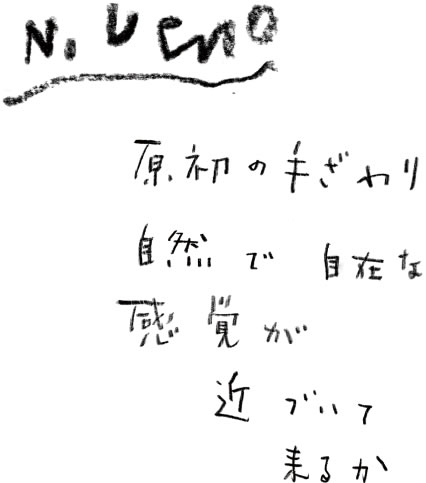 N. Ueno
原初の手ざわり
自然で 自在な
感覚が
近づいて
来るか